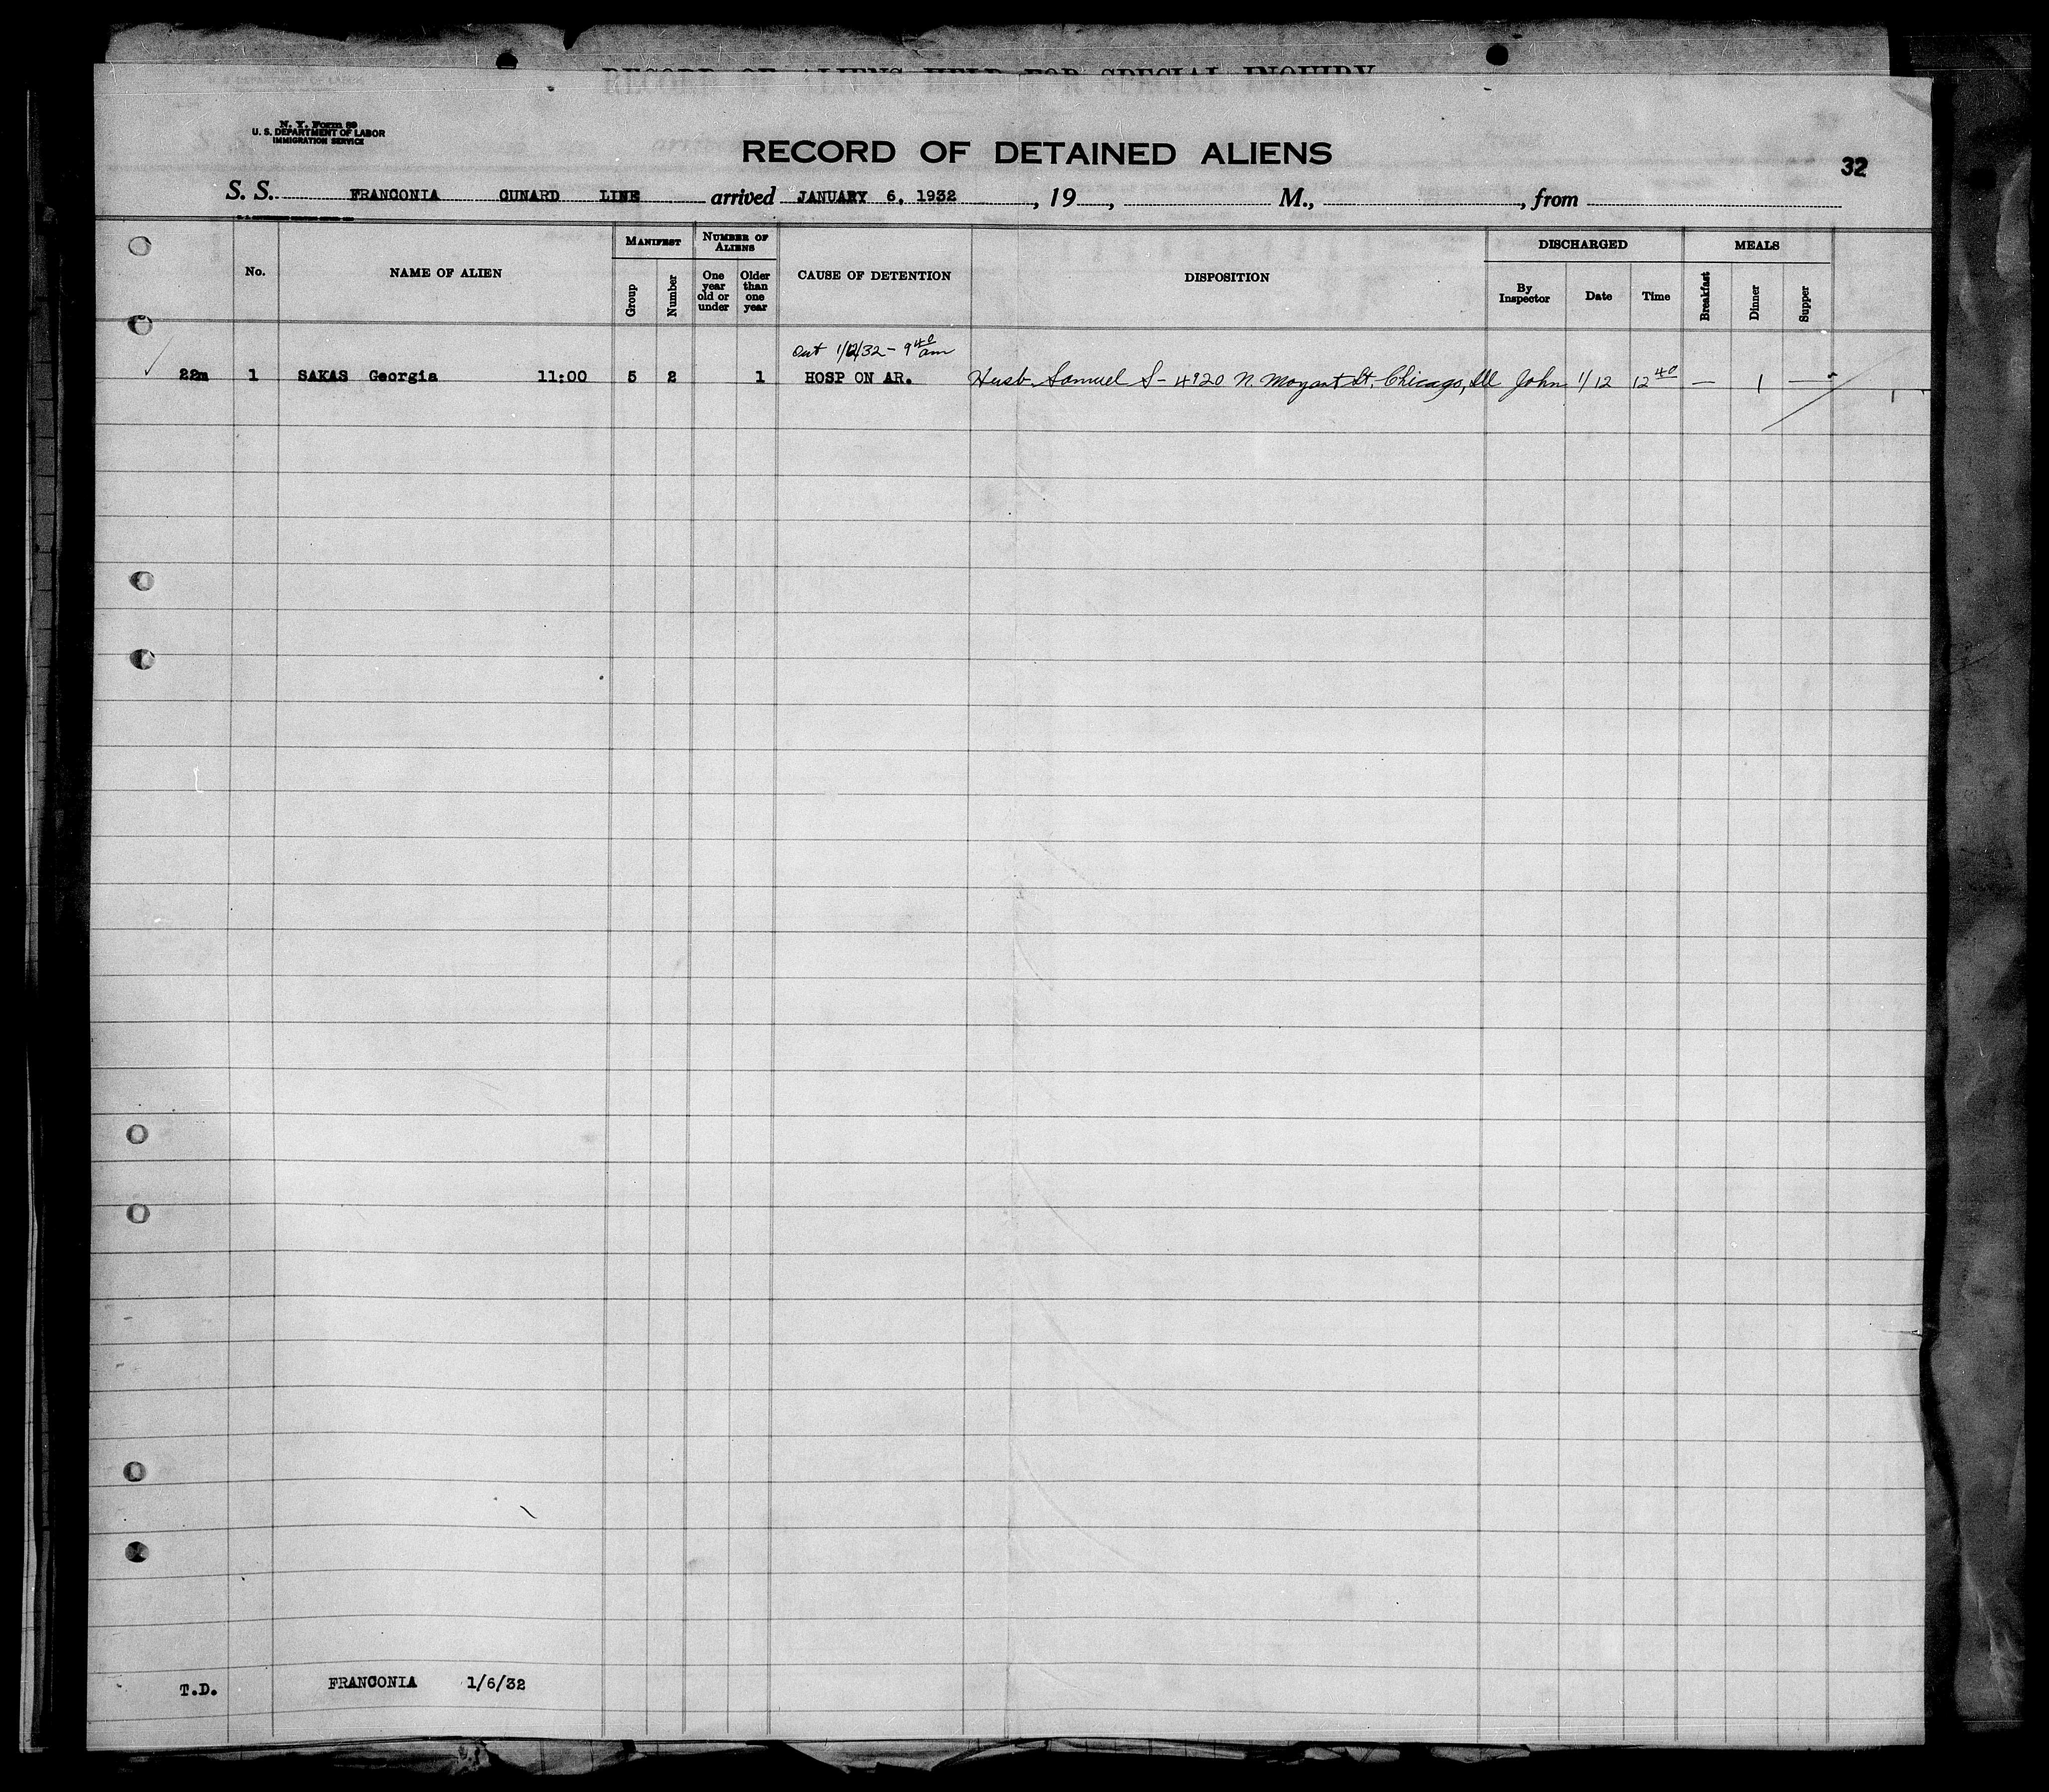 RECORD OF ALIENS HELD FOR SPECIAL INQUIRY
N. Y. Form 89
U. S. DEPARTMENT OF LABOR
IMMIGRATION SERVICE
RECORD OF DETAINED ALIENS
32
S. S. FRANCONIA CUNARD LINE arrived JANUARY 6, 1932, 19, M., from
No. NAME OF ALIEN MANIFEST NUMBER OF ALIENS CAUSE OF DETENTION DISPOSITION DISCHARGED MEALS
Group Number One year old or under Older than one year By Inspector Date Time Breakfast Dinner Supper
Out 1/12/32 - 9 40 am
22m 1 SAKAS Georgia 11:00 5 2 1 HOSP ON AR. Husb. Samuel S - 4920 N. St. Chicago, Ill John 1/12 12 40 — 1 —
T.D. FRANCONIA 1/6/32